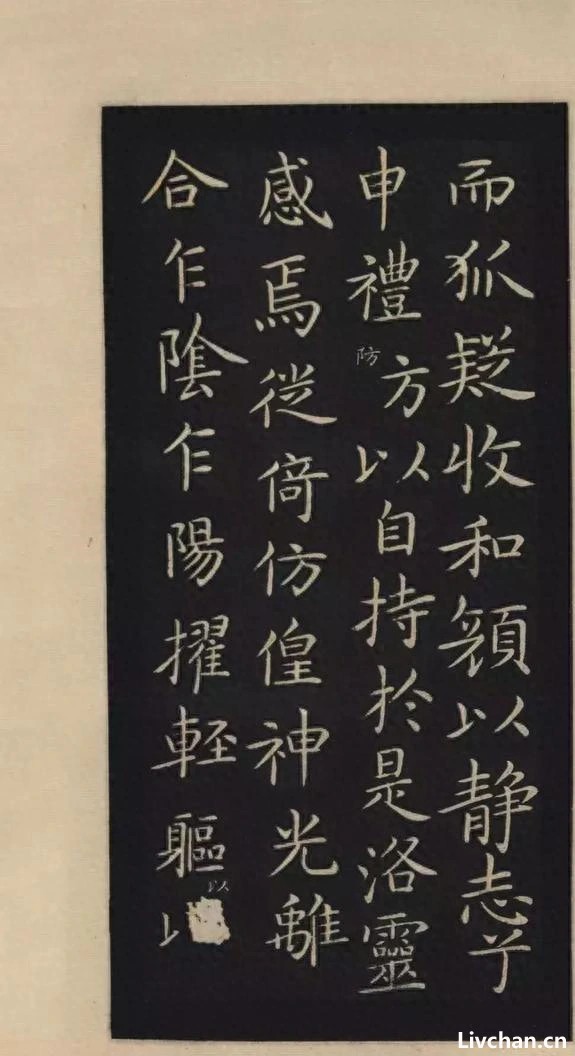 而狐疑收和顔以静志兮
申禮方以自持於是洛靈
防
感焉徙倚仿偟神光離
合乍陰乍陽擢輕軀
以
Livchan.cn